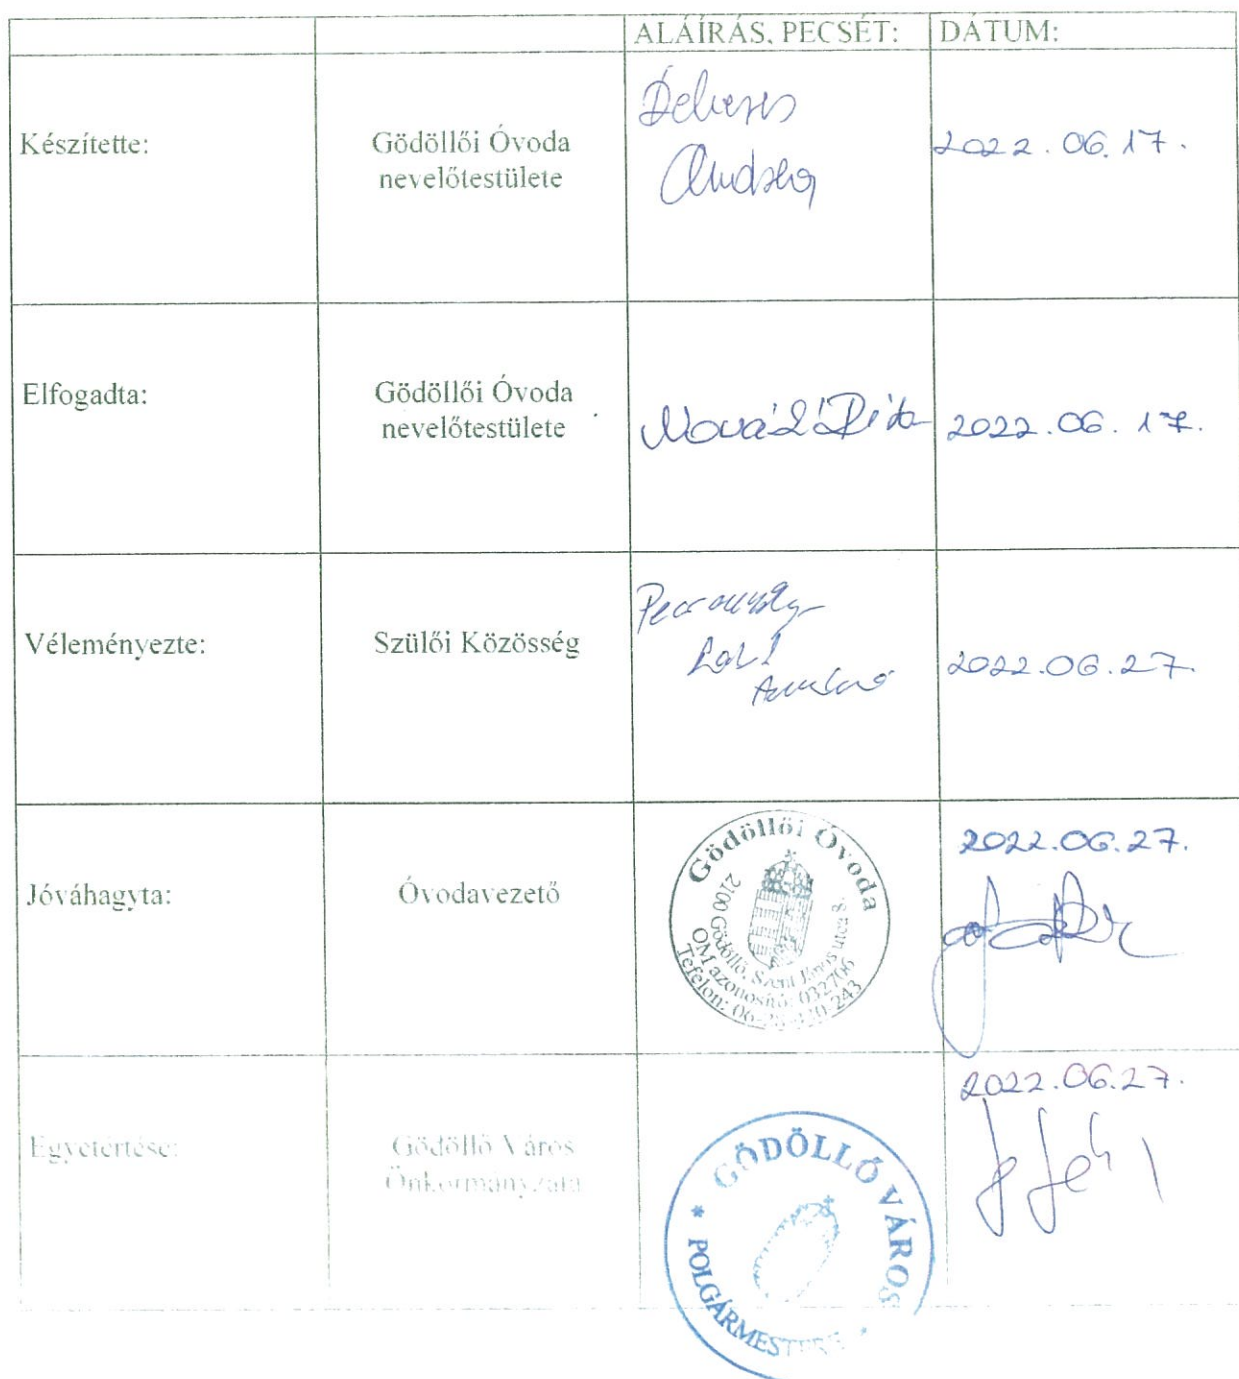 ALÁÍRÁS, PECSÉT: DÁTUM:
Készítette:
Gödöllői Óvoda
nevelőtestülete
2022.06.17.
Elfogadta:
Gödöllői Óvoda
nevelőtestülete
Novák Rita
2022.06.17.
Véleményezte:
Szülői Közösség
2022.06.27.
Jóváhagyta:
Óvodavezető
Gödöllői Óvoda
2100 Gödöllő, Szent János utca 8.
OM azonosító: 032706
Telefon: 06-28-420-243
2022.06.27.
Egyetértése:
Gödöllő Város
Önkormányzata
GÖDÖLLŐ VÁROS
* POLGÁRMESTERE *
2022.06.27.